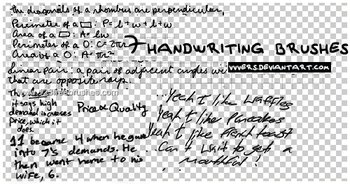 The diagonals of a rhombus are perpendicular,
Perimeter of a ▭: P= l+w+l+w
Area of a ▭: A= lw
Perimeter of a O: C= 2πr
Area of a O: A= πr²
7 HANDWRITING BRUSHES
VVVERS.DEVIANTART.COM
Linear Pair: a pair of adjacent angles
that are opposite rays.
This
it says high
demand increases
price, which it
does.
Price or Quality
...Yeah I like WAFFLES
Yeah I like Pancakes
Yeah I like French toast
Can't wait to get a
mouthful!
11 because 4 when he gave
into 7's demands. He
then went home to his
wife, 6.